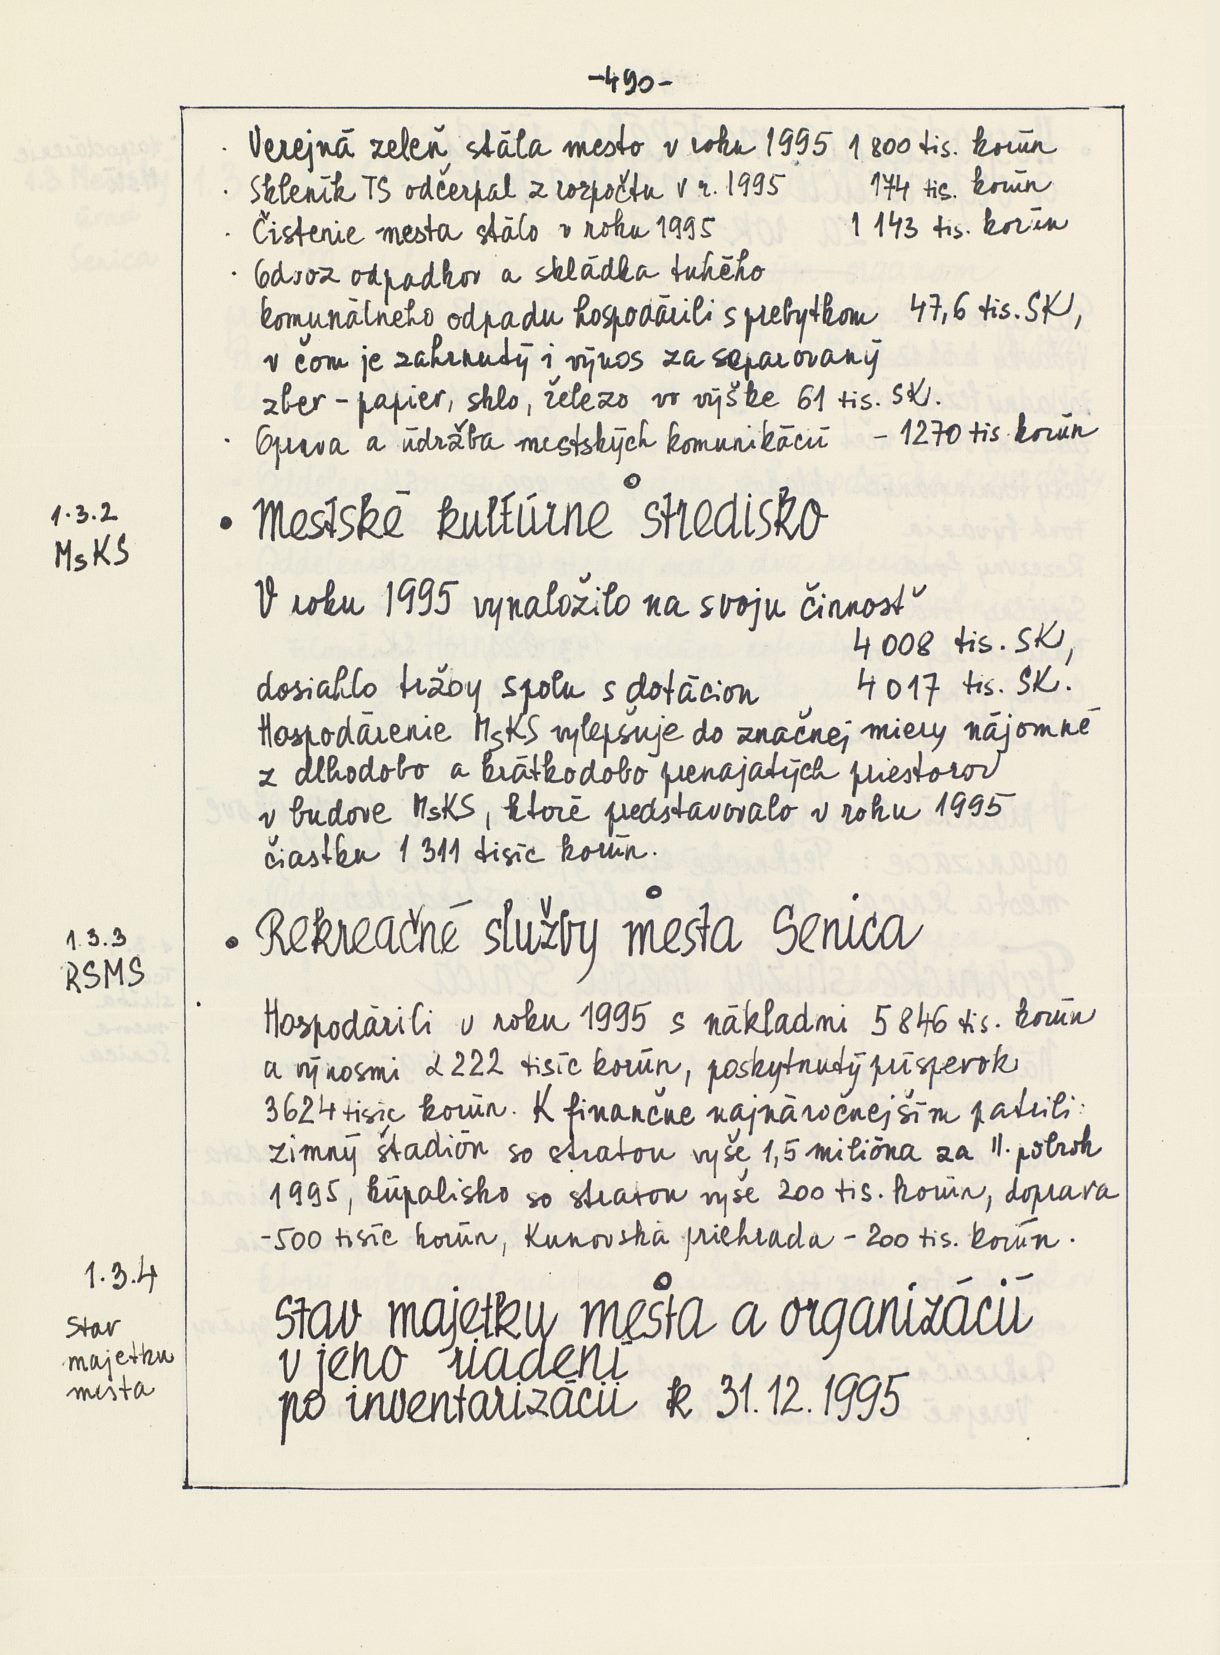 -490-
· Verejná zeleň stála mesto v roku 1995 1 800 tis. korún
· Skleník TS odčerpal z rozpočtu v r. 1995 174 tis. korún
· Čistenie mesta stálo v roku 1995 1 143 tis. korún
· Odvoz odpadkov a skládka tuhého
komunálneho odpadu hospodárili s prebytkom 47,6 tis. SK,
v čom je zahrnutý i výnos za separovaný
zber - papier, sklo, železo vo výške 61 tis. SK.
· Oprava a údržba mestských komunikácií - 1270 tis korún
1.3.2
MsKS
• Mestské kultúrne stredisko
V roku 1995 vynaložilo na svoju činnosť
4 008 tis. SK,
dosiahlo tržby spolu s dotáciou 4 017 tis. SK.
Hospodárenie MsKS vylepšuje do značnej miery nájomné
z dlhodobo a krátkodobo prenajatých priestorov
v budove MsKS, ktoré predstavovalo v roku 1995
čiastku 1 311 tisíc korún.
1.3.3
RSMS
• Rekreačné služby mesta Senica
Hospodárili v roku 1995 s nákladmi 5 846 tis. korún
a výnosmi 2 222 tisíc korún, poskytnutý príspevok
3624 tisíc korún. K finančne najnáročnejším patrili:
zimný štadión so stratou vyše 1,5 milióna za II. polrok
1995, kúpalisko so stratou vyše 200 tis. korún, doprava
-500 tisíc korún, Kunovská priehrada - 200 tis. korún.
1.3.4
Stav
majetku
mesta
Stav majetku mesta a organizácií
v jeho riadení
po inventarizácii k 31.12.1995